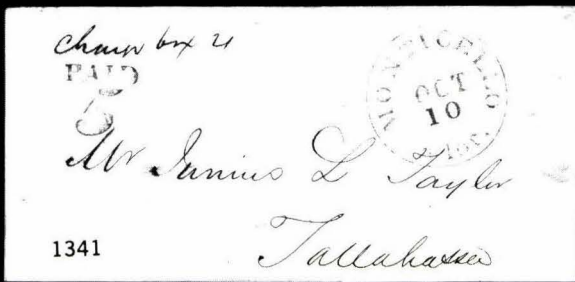 Charge box 21
PAID
5
MONTICELLO
OCT
10
Mr Junius L Taylor
Tallahassee
1341